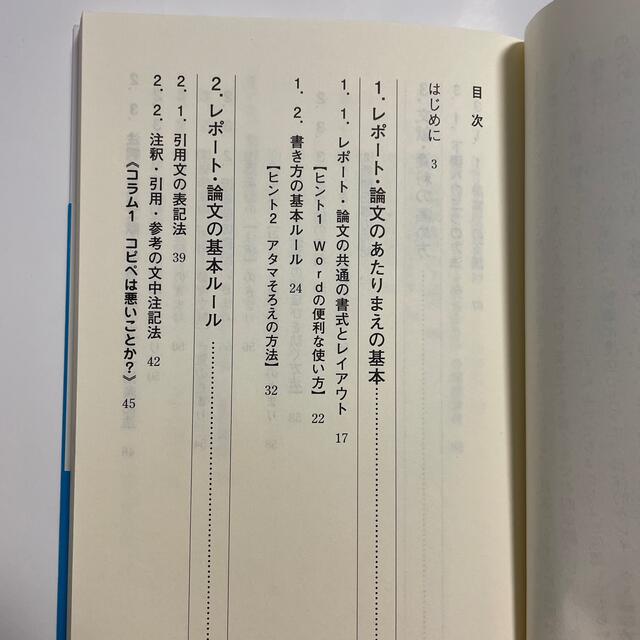 目次
はじめに 3
1. レポート・論文のあたりまえの基本
1. 1. レポート・論文の共通の書式とレイアウト 17
【ヒント1 Wordの便利な使い方】 22
1. 2. 書き方の基本ルール 24
【ヒント2 アタマそろえの方法】 32
2. レポート・論文の基本ルール
2. 1. 引用文の表記法 39
2. 2. 注釈・引用・参考の文中注記法 42
《コラム1 コピペは悪いことか?》 45